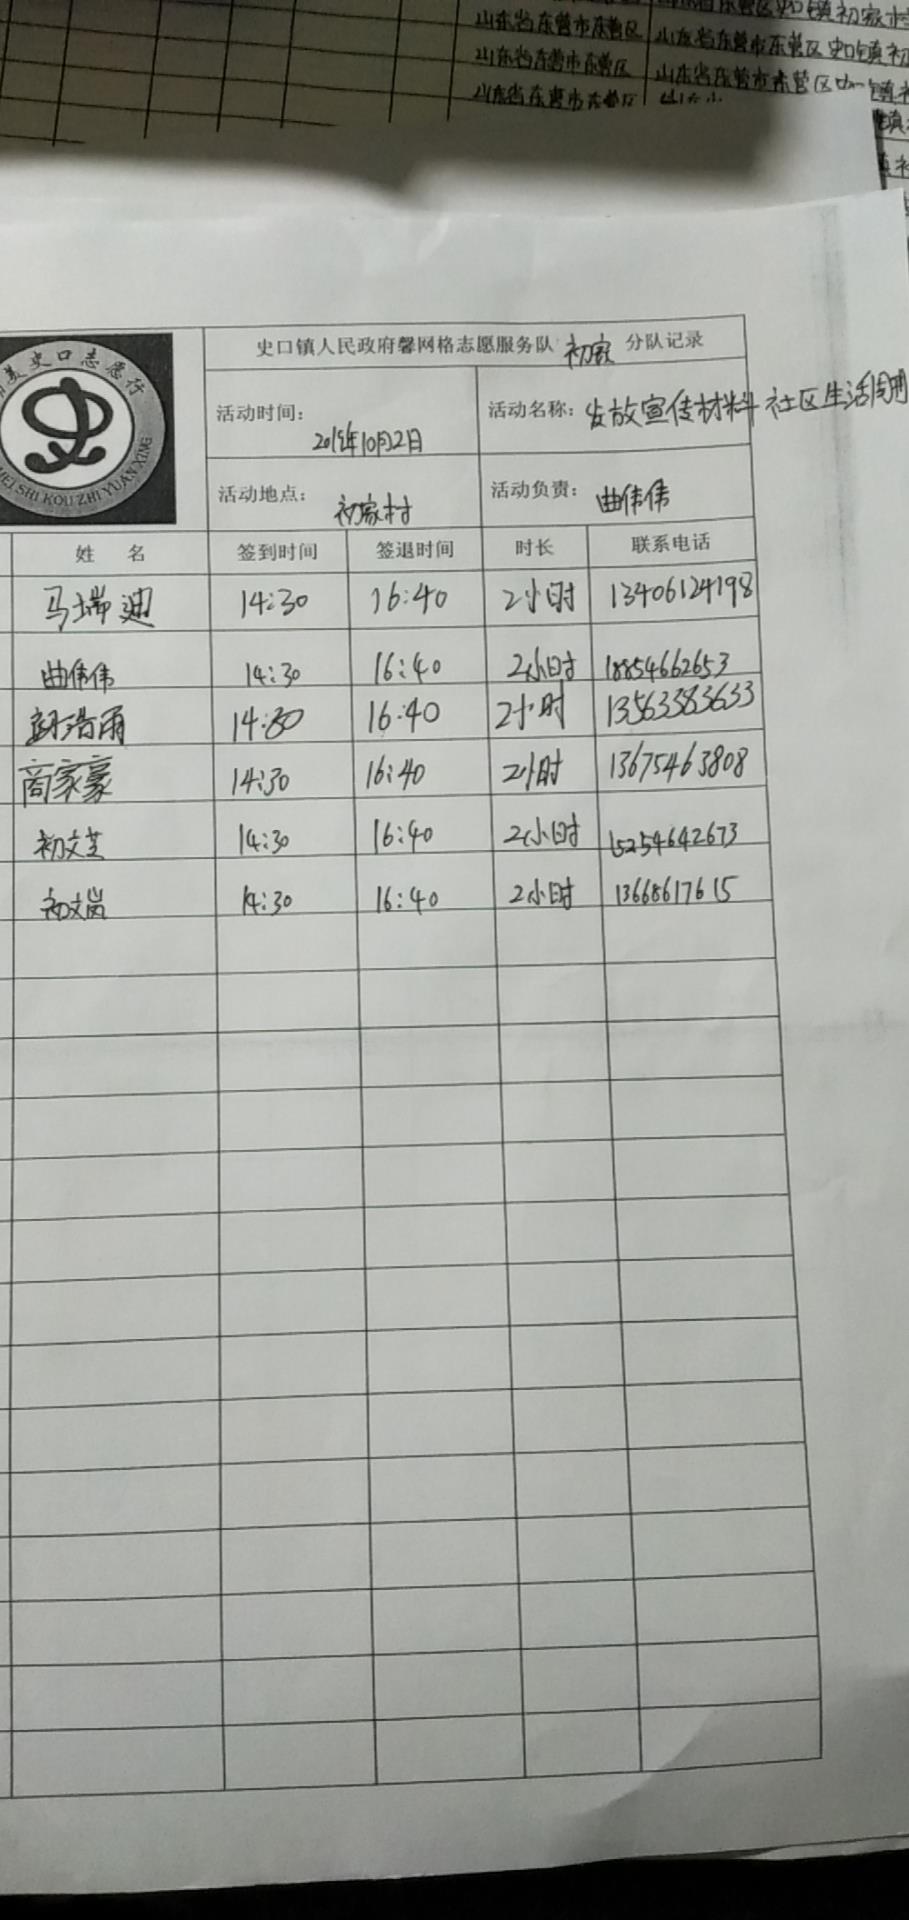 山东省东营市东营区
山东省东营市东营区 史口镇初
山东省东营市东营区
山东省东营市东营区
美史口志愿行
MEI SHI KOU ZHI YUAN XING
史口镇人民政府馨网格志愿服务队 初家 分队记录
活动时间： 2019年10月2日
活动名称： 发放宣传材料 社区生活
活动地点： 初家村
活动负责： 曲伟伟
姓 名 签到时间 签退时间 时长 联系电话
马瑞迪 14:30 16:40 2小时 13406124198
曲伟伟 14:30 16:40 2小时 18854662653
浩雨 14:30 16:40 2小时 13563383633
商家豪 14:30 16:40 2小时 13675463808
初文芝 14:30 16:40 2小时 15254642673
初文岗 14:30 16:40 2小时 13668617615